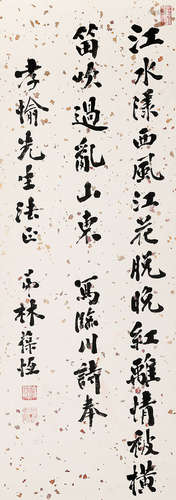 江水漾西風江花脫晚紅離情被橫
笛吹過亂山東 寫臨川詩奉
孝愉先生法正 林葆恆